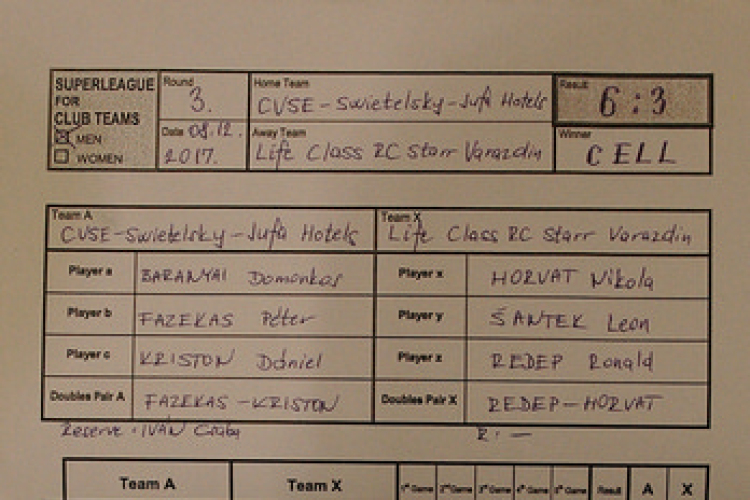 SUPERLEAGUE
FOR
CLUB TEAMS
MEN
WOMEN
Round
3.
Date 08.12.
2017.
Home Team
CVSE-Swietelsky-Jufa Hotels
Away Team
Life Class RC Starr Varazdin
Result
6:3
Winner
CELL
Team A
CVSE-Swietelsky-Jufa Hotels
Team X
Life Class RC Starr Varazdin
Player a BARANYAI Domonkos Player x HORVAT Nikola
Player b FAZEKAS Péter Player y ŠANTEK Leon
Player c KRISTON Dániel Player z REDEP Ronald
Doubles Pair A FAZEKAS-KRISTON Doubles Pair X REDEP-HORVAT
Reserve: IVÁN Csaba R: —
Team A Team X 1st Game 2nd Game 3rd Game 4th Game 5th Game Result A X